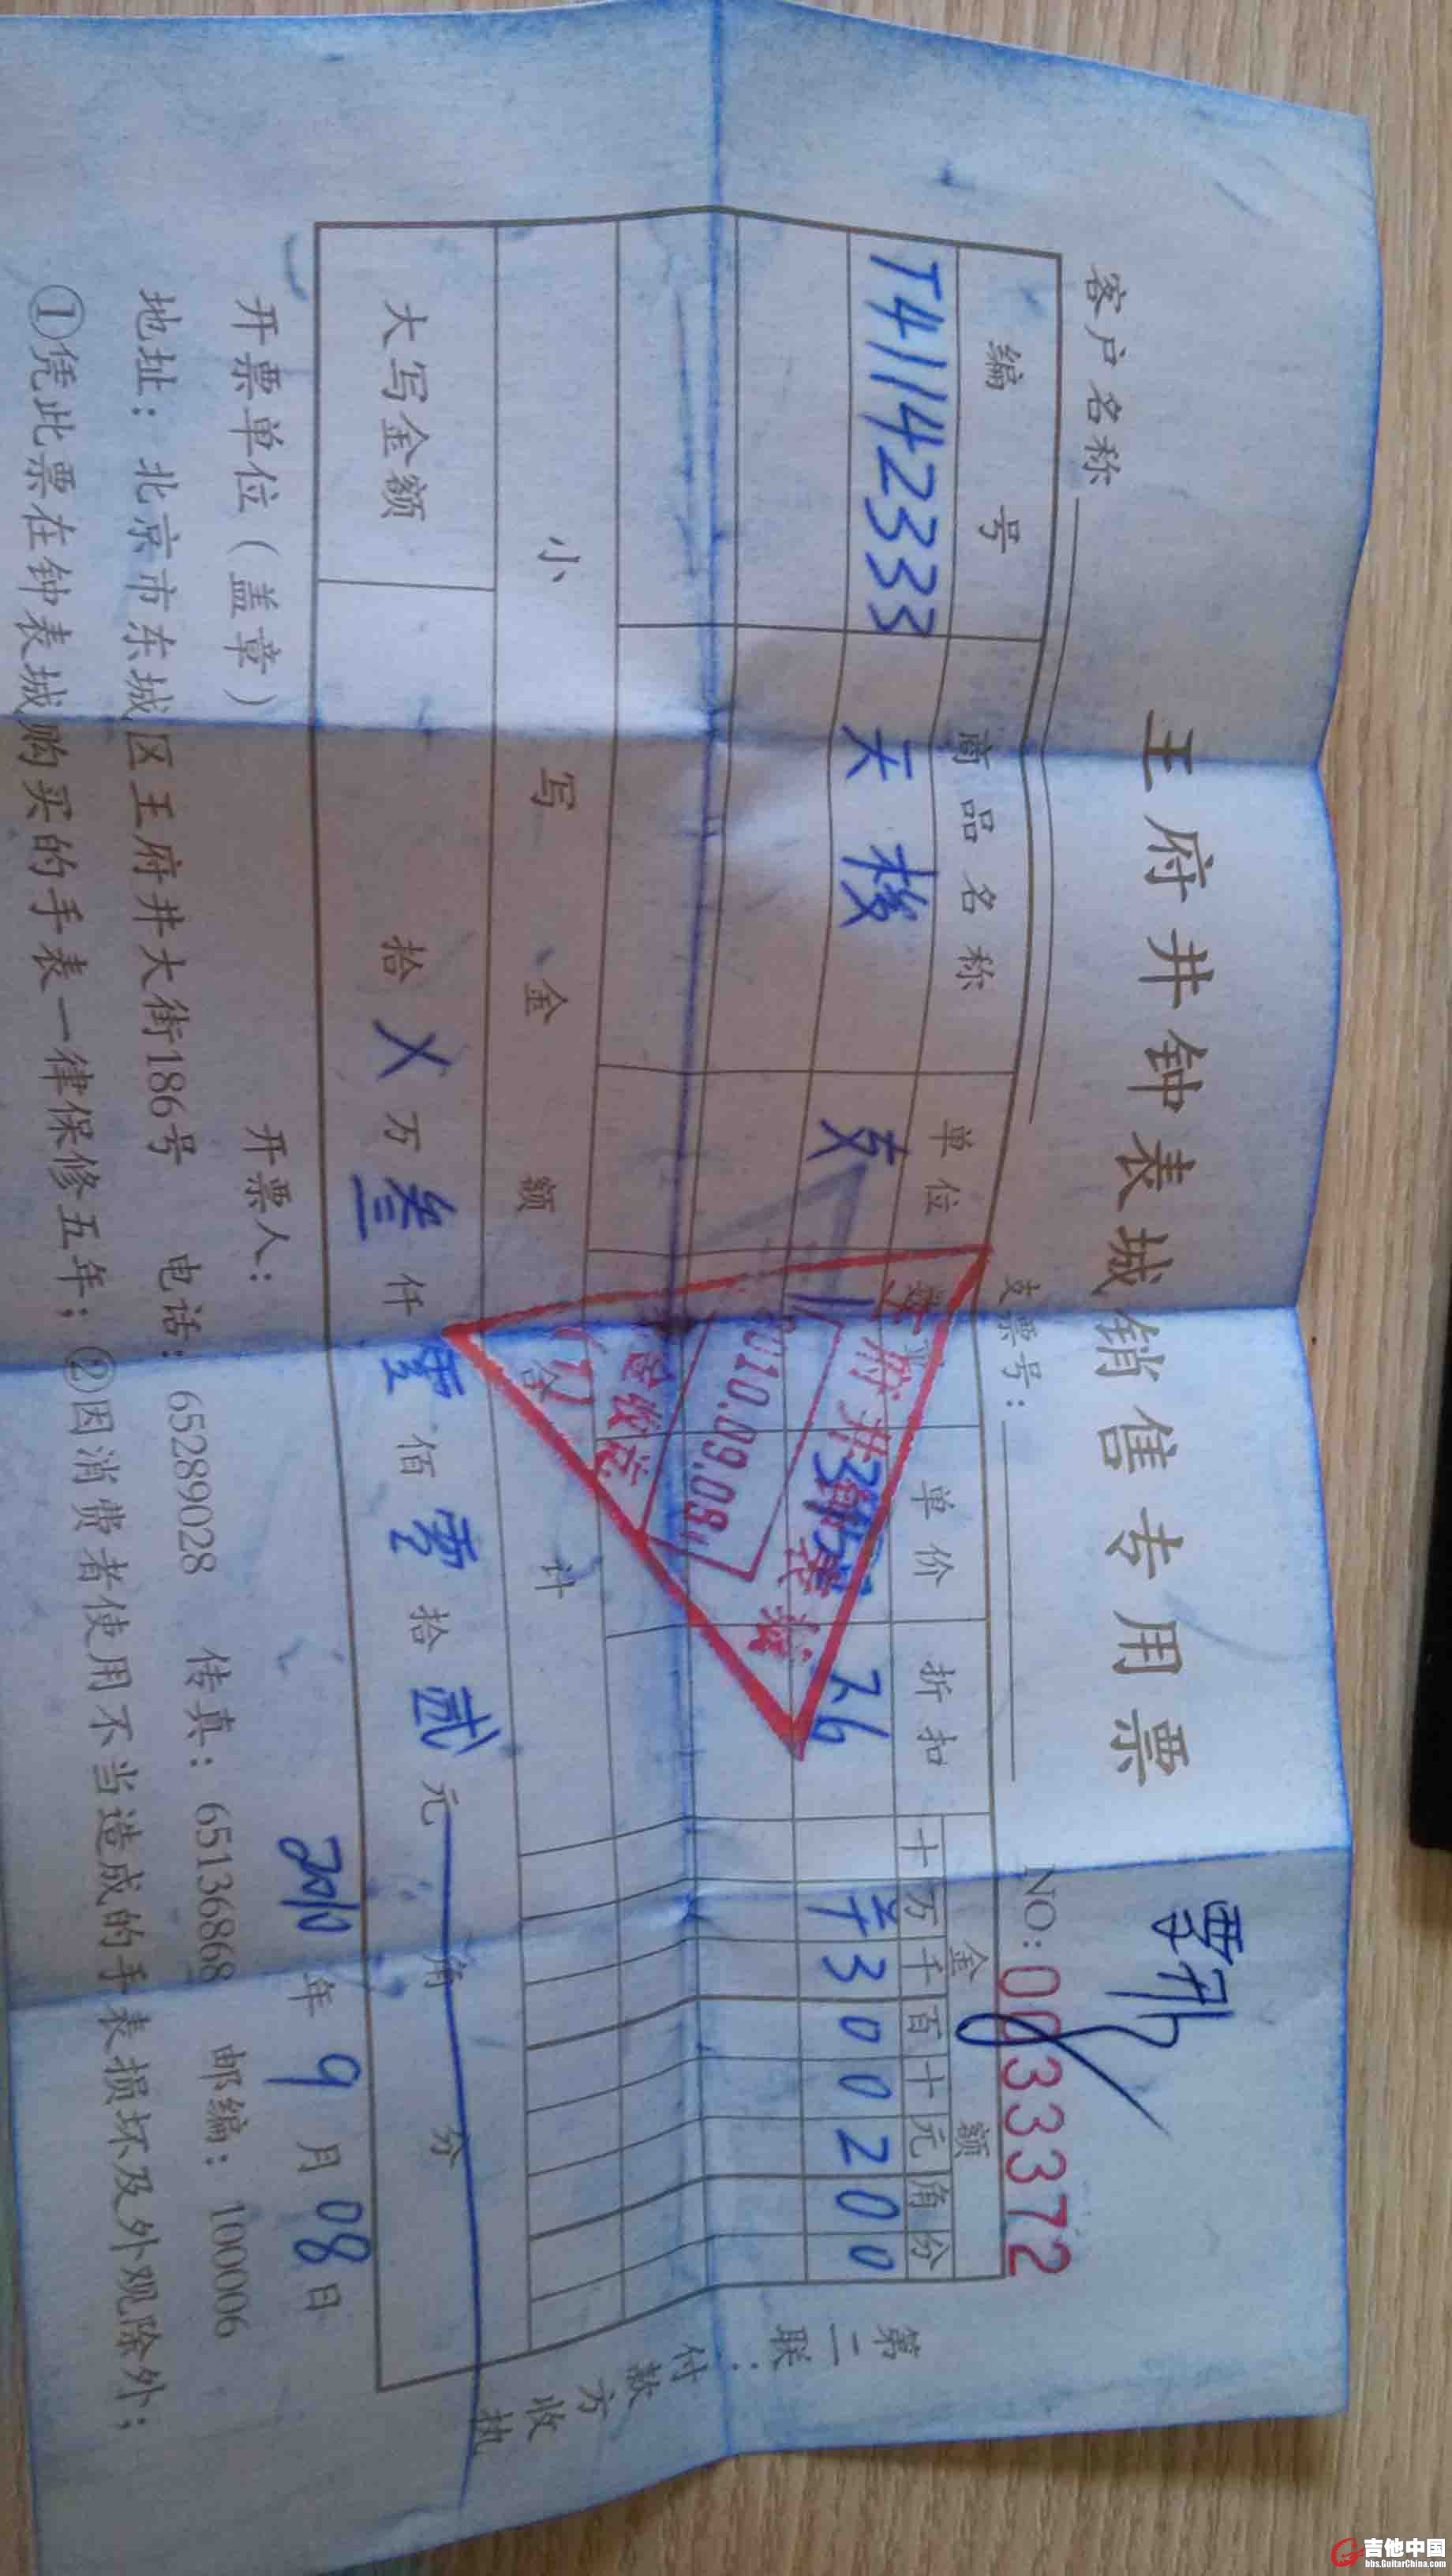 王府井钟表城销售专用票
NO: 0033372
客户名称 支票号:
编号 商品名称 单位 数量 单价 折扣 金额
十 万 千 百 十 元 角 分
T411142333 天梭 支 1 ¥ 3 0 0 2 0 0
小写金额合计
大写金额 拾 X 万 叁 仟 零 佰 零 拾 贰 元 角 分
开票单位(盖章) 开票人: 2010 年 9 月 08 日
地址: 北京市东城区王府井大街186号 电话: 65289028 传真: 65136868 邮编: 100006
①凭此票在钟表城购买的手表一律保修五年; ②因消费者使用不当造成的手表损坏及外观除外;
第二联:付款方收执
王府井钟表城
2010.09.08
现金收讫
吉他中国
bbs.GuitarChina.com